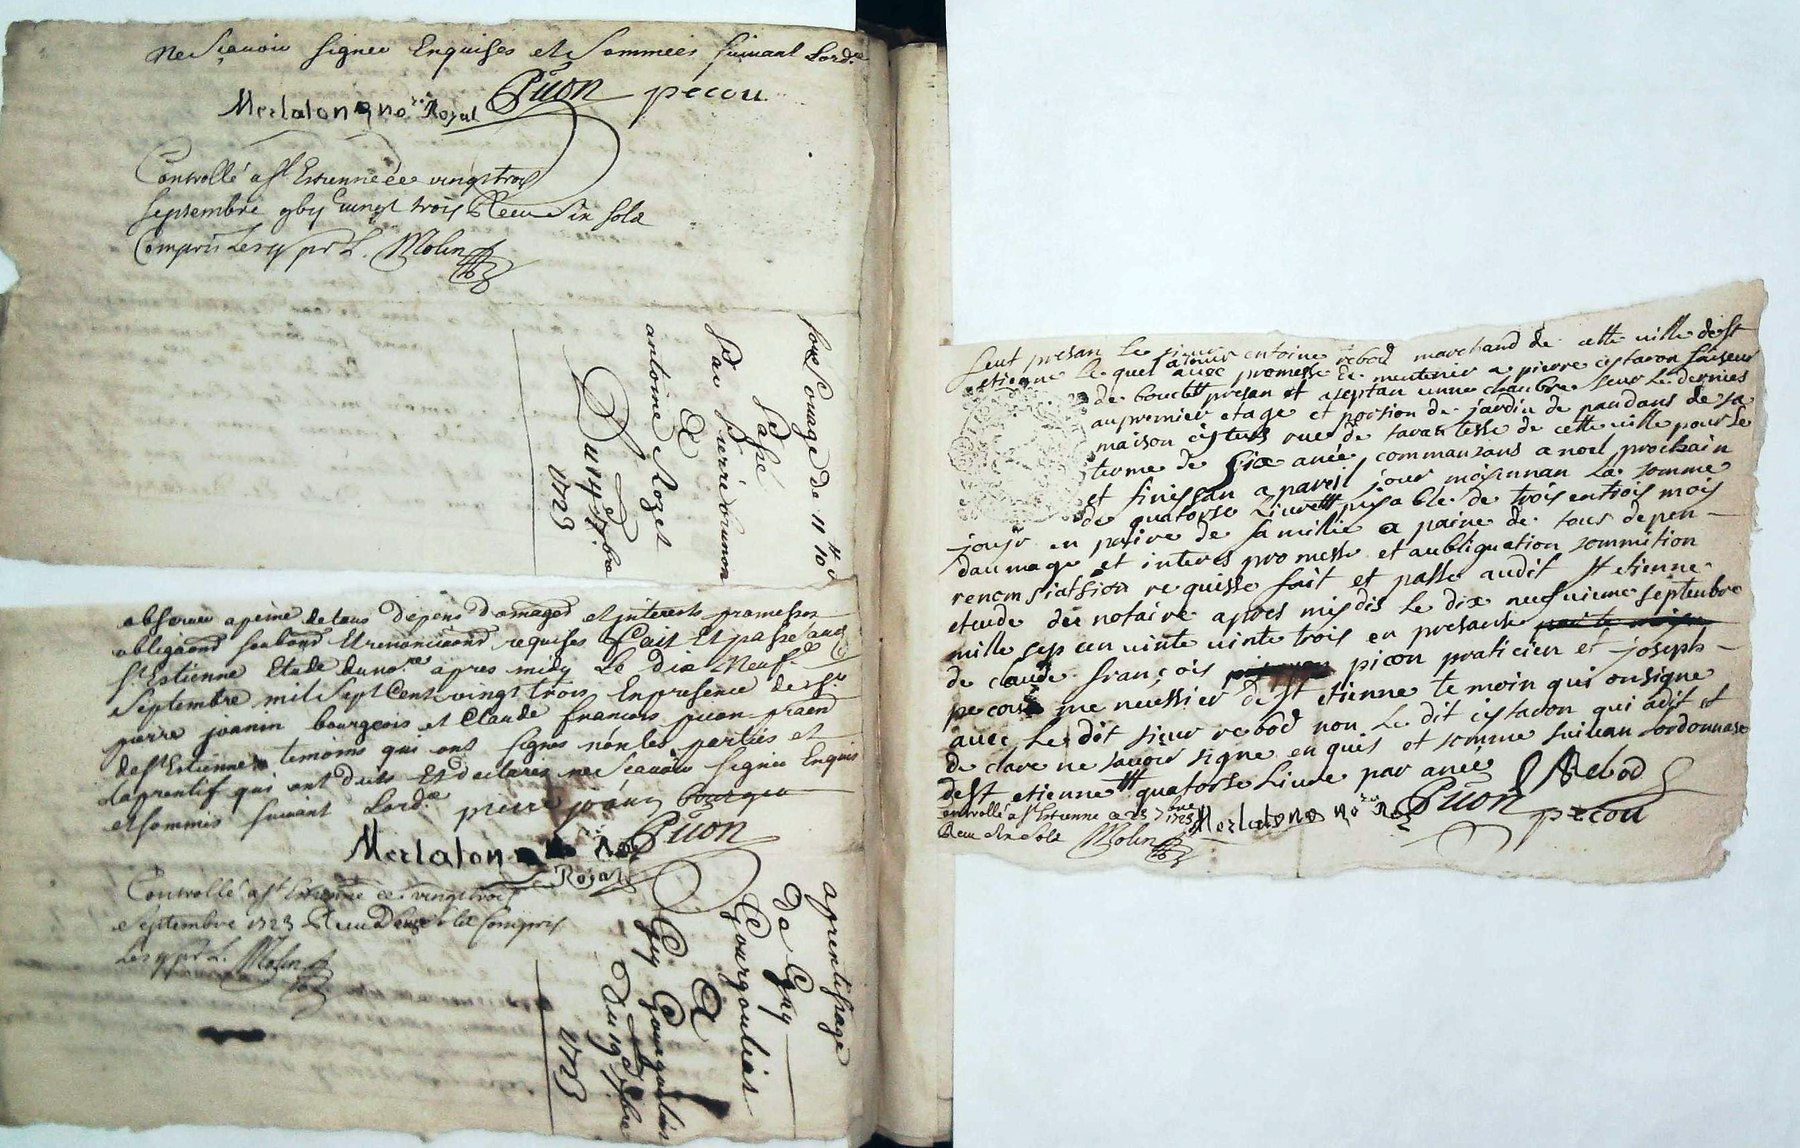 ne Sçavoir signer Enquises et Sommees suivant Lord.ce
Merlaton no.re Royal Picon pecou
Controllé a St Estienne ce vingt trois
septembre vingt trois Receu Six sols
Compris Les pr L. Molin
sous Louage de 11tt 10 s
par pierre
a
antoine Rozet
Du 17.bre
1723
observer a peine de tous depens domages et interests promesses
obligaond renonciaond requises fait Et passé aud
St Estienne Etude du no.re apres midy Le Dix Neuf.e
Septembre mil Sept Cent vingt trois En presence de sr
pierre joanin bourgeois et Claude francois picon praen
de St Estienne temoins qui ont signes non les parties et
Laprentif qui ont dits Et declares ne Scavoir signer Enquis
et sommes suivant Lord.ce pierre joanin bourgeu
Merlaton Royal Picon
Controllé a St Estienne ce vingt trois
Septembre 1723 Receu sols Compris
Les pr L. Molin
aprentissage
Da Guy
Gourgoulias
A
Guy Gourgoulias
Du 19 7bre
1723
feut presan Le sieur entoine rebod marchand de cette ville de St
etienne Le quel avec promesse de meutenir a pierre cistaron faiseur
de boucle presan et aseptan unne chanbre seur le dernier
au premier etage et porsion de jardin de pandans de sa
maison rue de tavar tesse de cette ville pour Le
terme de Six aneé commansans a noel prochain
et finissan a pareil jour moienan La somme
de quatorse Livre peiable de trois en trois mois
jouir en paire de famillie a paine de tous depen
daumage et interes promesse et aubliguation soumition
renonsiatsion requisse fait et passe audit St etienne
etude du notaire apres midis Le dix neufvieme septenbre
mille sep cen vinte vinte trois en presanse
de claude françois picon praticien et joseph
pecou me nuissier de St etienne temoin qui onsigne
avec Le dit sieur rebod non Le dit cistaron qui adit et
de clare ne savoir signe enquis et somme suivan Lordonnase
de St etienne quatorse Livre par aneé Rebod
controllé a St Estienne ce 23 7bre 1723 Merlaton no.re Picon pecou
Receu sols Molin